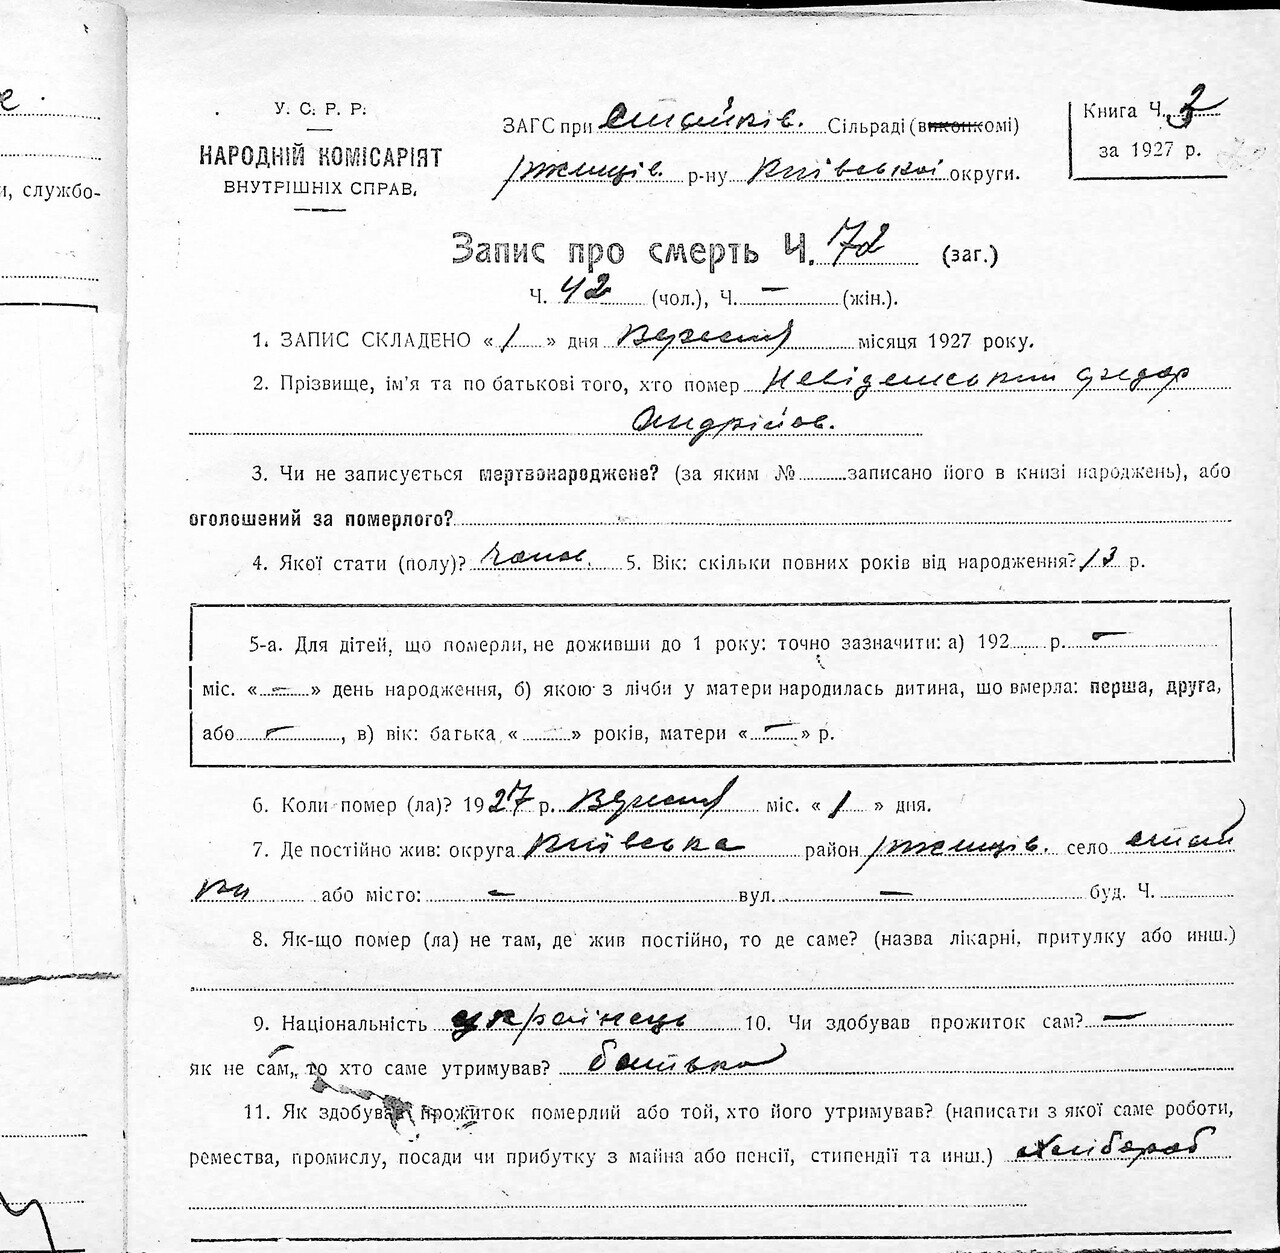 е.
и, службо-
У. С. Р. Р.
НАРОДНІЙ КОМІСАРІЯТ
ВНУТРІШНІХ СПРАВ.
ЗАГС при Стайків. Сільраді (виконкомі)
Ржищів. р-ну Київської округи.
Книга Ч. 3
за 1927 р.
Запис про смерть Ч. 72 (заг.)
Ч. 42 (чол.), Ч. — (жін.).
1. ЗАПИС СКЛАДЕНО « 1 » дня Вересня місяця 1927 року.
2. Прізвище, ім'я та по батькові того, хто помер Федор
Андрійов.
3. Чи не записується мертвонароджене? (за яким № записано його в книзі народжень), або
оголошений за померлого?
4. Якої стати (полу)? чолов. 5. Вік: скільки повних років від народження? 13 р.
5-а. Для дітей, що померли, не доживши до 1 року: точно зазначити: а) 192 р. —
міс. « — » день народження, б) якою з лічби у матери народилась дитина, шо вмерла: перша, друга,
або — , в) вік: батька « » років, матери « — » р.
6. Коли помер (ла)? 1927 р. Вересня міс. « 1 » дня.
7. Де постійно жив: округа Київська район Ржищів. село Стай
ки або місто: — вул. — буд. Ч.
8. Як-що помер (ла) не там, де жив постійно, то де саме? (назва лікарні, притулку або инш.)
9. Національність українець 10. Чи здобував прожиток сам? —
як не сам, то хто саме утримував? батько
11. Як здобував прожиток померлий або той, хто його утримував? (написати з якої саме роботи,
ремества, промислу, посади чи прибутку з майна або пенсії, стипендії та инш.) хлібороб